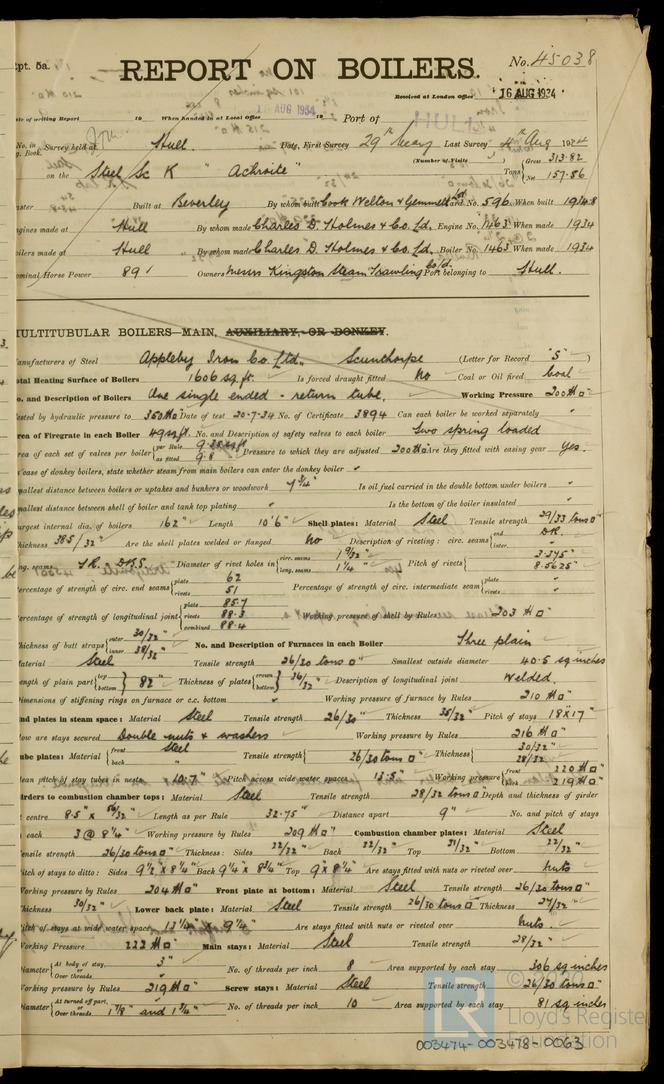 Rpt. 5a.
REPORT ON BOILERS.
No. 45038
Received at London Office 16 AUG 1934
Date of writing Report 19 When handed in at Local Office AUG 1934 19 Port of HULL
No. in Reg. Book. Survey held at Hull. Date, First Survey 29th May Last Survey 4th Aug 1934
on the Steel Sc K "Achroite" (Number of Visits ) Tons { Gross 313.82 Net 157.86
Master Built at Beverley By whom built Cook Welton & Gemmell Ltd. Yard No. 596 When built 1934.8
Engines made at Hull By whom made Charles D. Holmes & Co. Ld. Engine No. 1463 When made 1934
Boilers made at Hull By whom made Charles D. Holmes & Co. Ld. Boiler No. 1463 When made 1934
Nominal Horse Power 89 Owners Messrs Kingston Steam Trawling Co/Ld. Port belonging to Hull.
MULTITUBULAR BOILERS—MAIN, AUXILIARY, OR DONKEY.
Manufacturers of Steel Appleby Iron Co. Ltd. Scunthorpe (Letter for Record S)
Total Heating Surface of Boilers 1606 sq. ft. Is forced draught fitted No Coal or Oil fired Coal
No. and Description of Boilers One single ended - return tube. Working Pressure 200 lb □"
Tested by hydraulic pressure to 350 lb □" Date of test 20-7-34 No. of Certificate 3894 Can each boiler be worked separately "
Area of Firegrate in each Boiler 49 sq ft. No. and Description of safety valves to each boiler Two spring loaded
Area of each set of valves per boiler { per Rule 9.38 sq ft as fitted 9.8 Pressure to which they are adjusted 200 lb □" Are they fitted with easing gear Yes.
In case of donkey boilers, state whether steam from main boilers can enter the donkey boiler "
Smallest distance between boilers or uptakes and bunkers or woodwork 7 3/4" Is oil fuel carried in the double bottom under boilers "
Smallest distance between shell of boiler and tank top plating " Is the bottom of the boiler insulated "
Largest internal dia. of boilers 162" Length 10'6" Shell plates: Material Steel Tensile strength 29/33 tons □"
Thickness 38.5/32" Are the shell plates welded or flanged No Description of riveting: circ. seams { end DR. inter. "
long. seams T.R. D.B.S. Diameter of rivet holes in { circ. seams 1 9/32" long. seams 1 1/4" Pitch of rivets { 3.375" 8.5625"
Percentage of strength of circ. end seams { plate 62 rivets 51 Percentage of strength of circ. intermediate seam { plate " rivets "
Percentage of strength of longitudinal joint { plate 85.7 rivets 88.3 combined 88.4 Working pressure of shell by Rules 203 lb □"
Thickness of butt straps { outer 30/32" inner 38/32" No. and Description of Furnaces in each Boiler Three plain
Material Steel Tensile strength 26/30 tons □" Smallest outside diameter 40.5 sq inches
Length of plain part { top bottom } 82" Thickness of plates { crown bottom } 26/32" Description of longitudinal joint Welded.
Dimensions of stiffening rings on furnace or c.c. bottom " Working pressure of furnace by Rules 210 lb □"
End plates in steam space: Material Steel Tensile strength 26/30" Thickness 38/32" Pitch of stays 18" x 17"
How are stays secured Double nuts & washers Working pressure by Rules 216 lb □"
Tube plates: Material { front Steel back " Tensile strength { 26/30 tons □" Thickness { 30/32" 28/32"
Mean pitch of stay tubes in nests 10.7" Pitch across wide water spaces 13.5" Working pressure { front 220 lb □" back 219 lb □"
Girders to combustion chamber tops: Material Steel Tensile strength 28/32 tons □" Depth and thickness of girder
at centre 8.5" x 56/32" Length as per Rule 32.75" Distance apart 9" No. and pitch of stays
in each 3 @ 8 1/4" Working pressure by Rules 209 lb □" Combustion chamber plates: Material Steel
Tensile strength 26/30 tons □" Thickness: Sides 22/32" Back 22/32" Top 21/32" Bottom 22/32"
Pitch of stays to ditto: Sides 9 1/2" x 8 1/4" Back 9 1/4" x 8 3/4" Top 9" x 8 1/4" Are stays fitted with nuts or riveted over nuts
Working pressure by Rules 204 lb □" Front plate at bottom: Material Steel Tensile strength 26/30 tons □"
Thickness 30/32" Lower back plate: Material Steel Tensile strength 26/30 tons □" Thickness 27/32"
Pitch of stays at wide water space 13 1/4" x 9 1/4" Are stays fitted with nuts or riveted over nuts.
Working Pressure 222 lb □" Main stays: Material Steel Tensile strength 28/32"
Diameter { At body of stay, or Over threads 3" No. of threads per inch 8 Area supported by each stay 306 sq inches
Working pressure by Rules 219 lb □" Screw stays: Material Steel Tensile strength 26/30 tons □"
Diameter { At turned off part, or Over threads 1 7/8" and 1 3/4" No. of threads per inch 10 Area supported by each stay 81 sq inches
© 2020
LR
Lloyd's Register
Foundation
003474-003478-0063